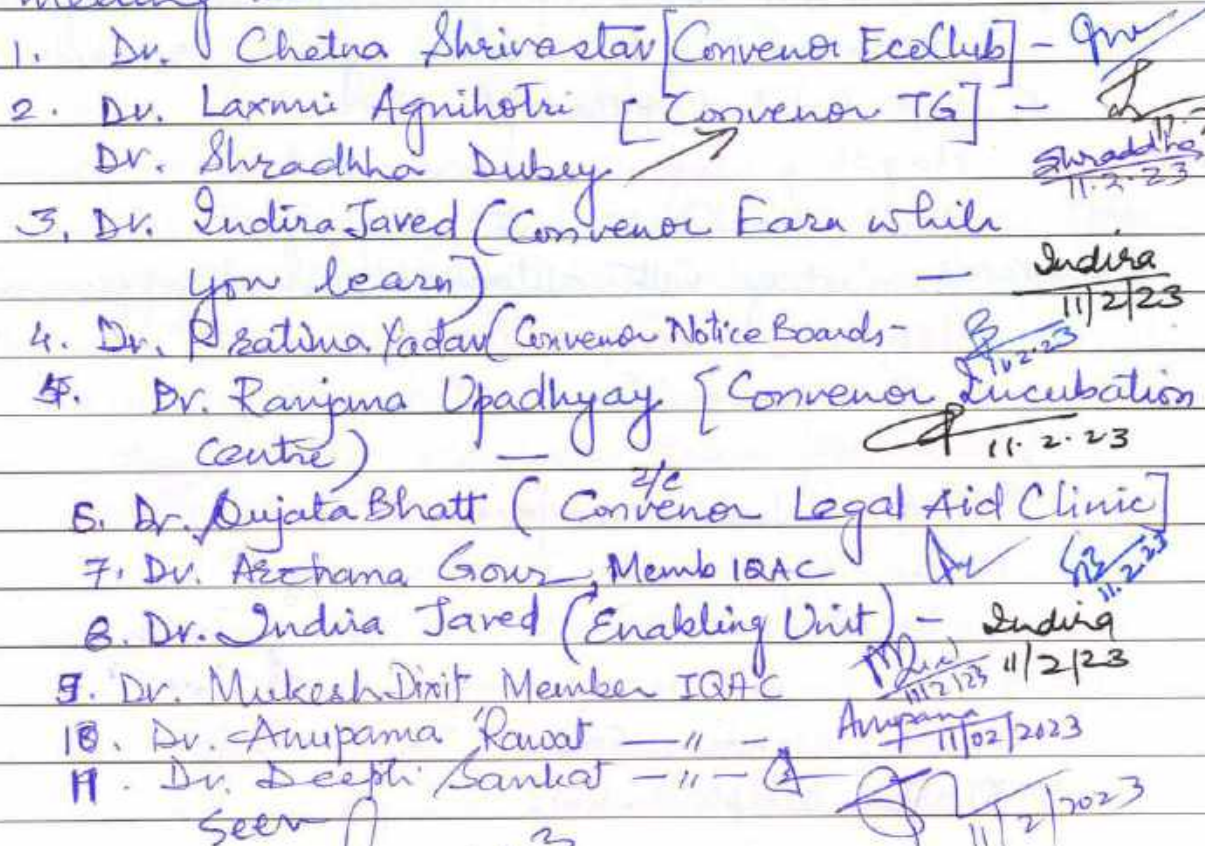 meeting
1. Dr. Chetna Shrivastav [Convenor EcoClub] -
2. Dr. Laxmi Agnihotri [Convenor TG] -
Dr. Shradhha Dubey Shraddha
11.2.23
3. Dr. Indira Javed (Convenor Earn while
you learn) - Indira
11/2/23
4. Dr. Pratima Yadav (Convenor Notice Boards-
11.2.23
5. Dr. Ranjana Upadhyay [Convenor Incubation
Centre) - 11.2.23
6. Dr. Sujata Bhatt ( I/C Convenor Legal Aid Clinic]
7. Dr. Archana Gour, Memb IQAC
11.2.23
8. Dr. Indira Javed (Enabling Unit) - Indira
11/2/23
9. Dr. Mukesh Dixit Member IQAC
11/2/23
10. Dr. Anupama Rawat -"- Anupama
11/02/2023
11. Dr. Deepti Sankat -"-
11/2/2023
Seen